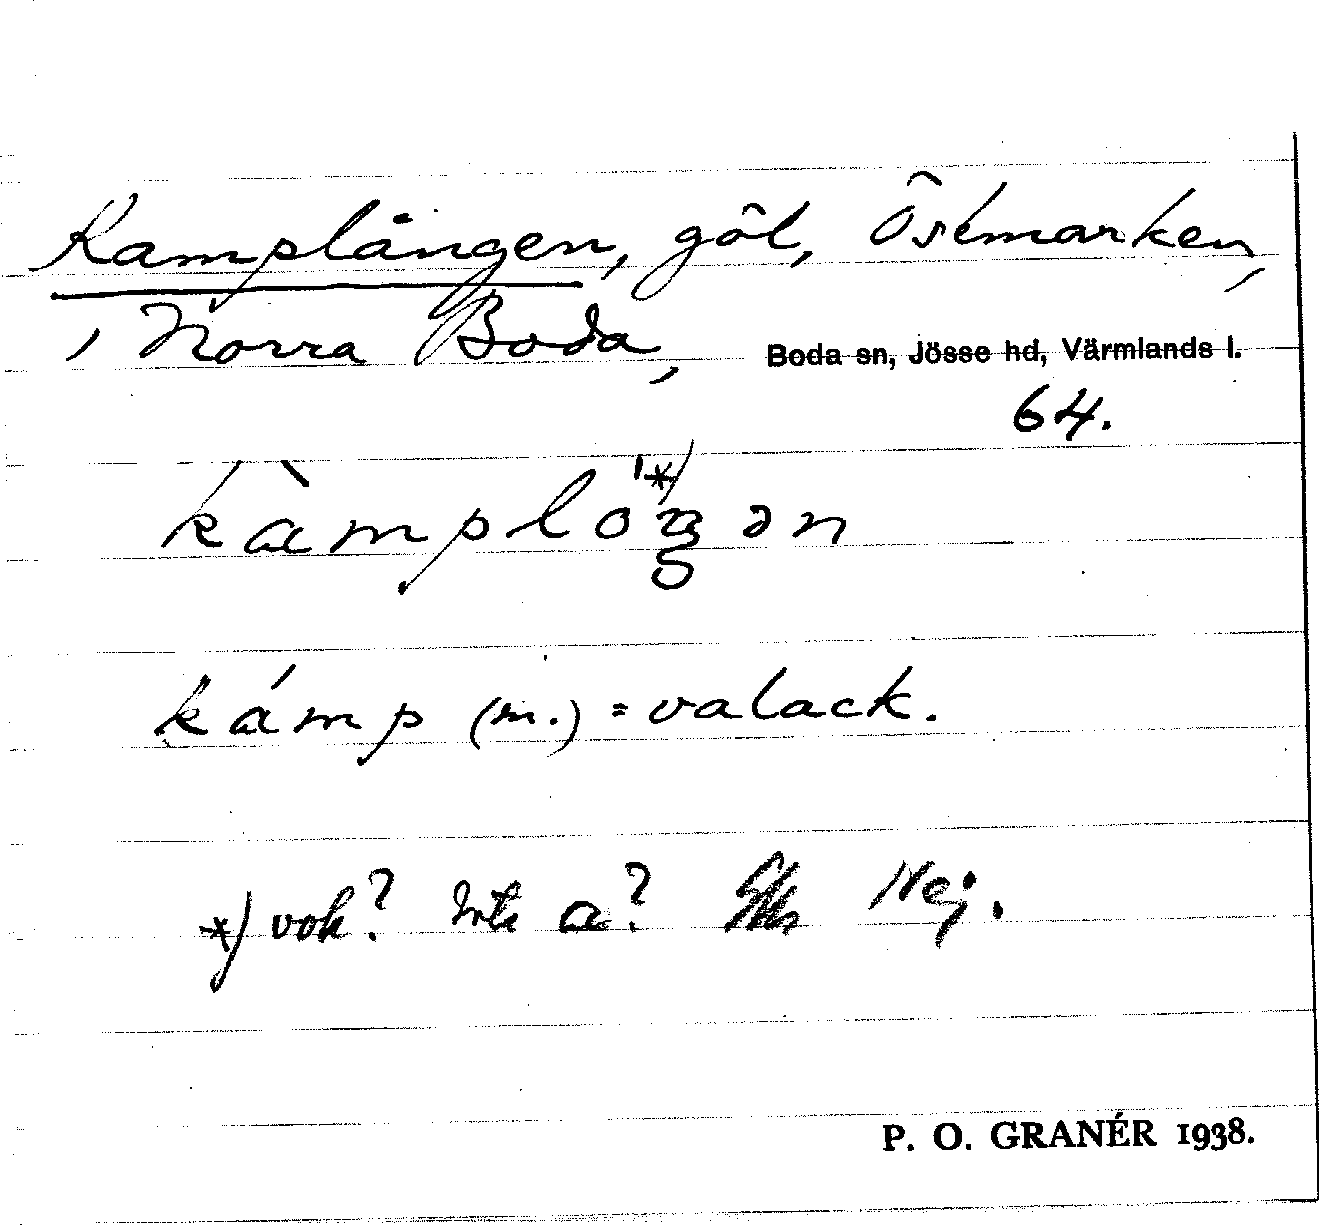 Kamplången, göl, Östmarken,
i Norra Boda,
Boda sn, Jösse hd, Värmlands l.
64.
kàmplo̍ŋən
kámp (m.) = valack.
*) vok? Inte a? Nej.
P. O. GRANÉR 1938.